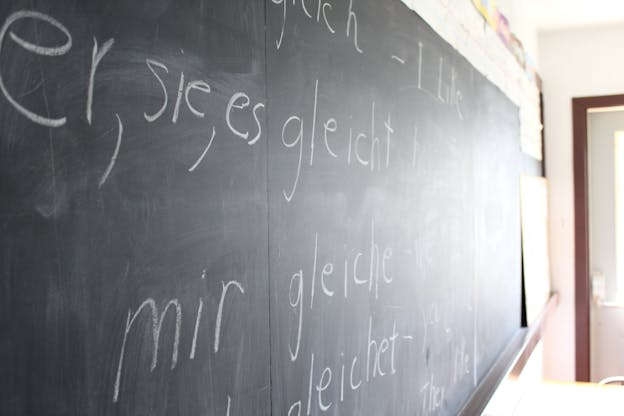 gleich - I like
er, sie, es gleicht
mir gleiche - we
gleichet -
They like